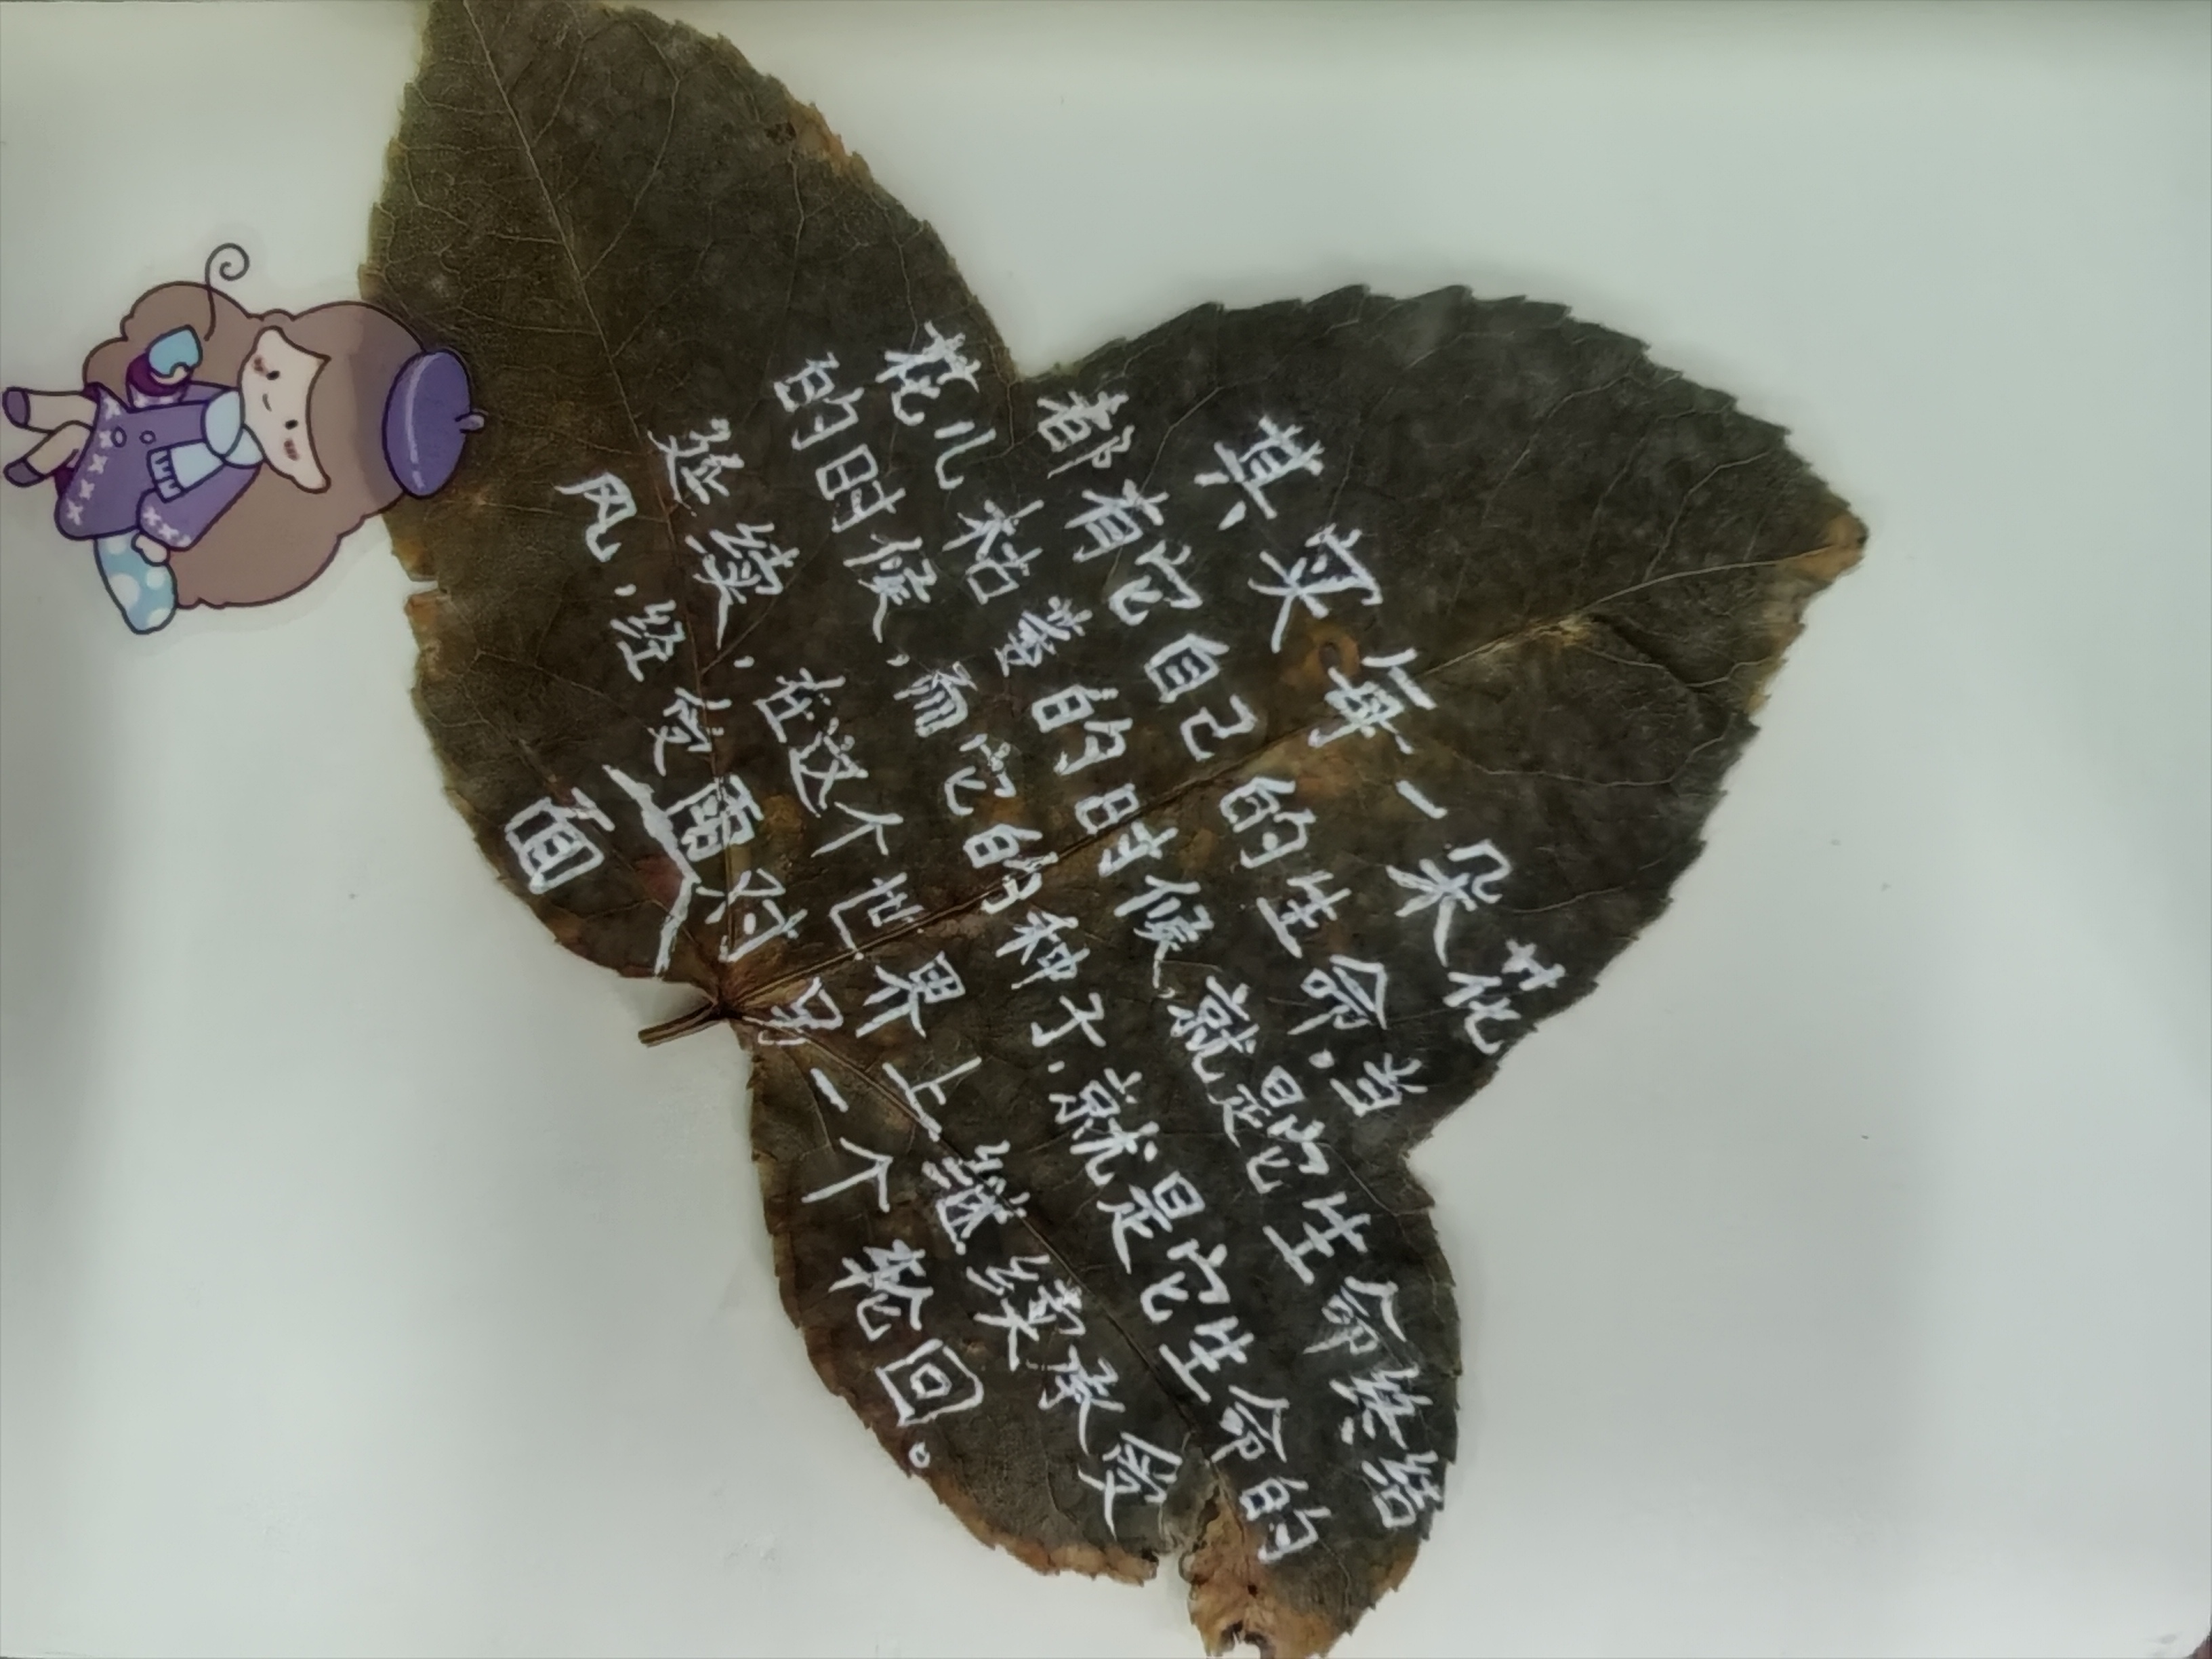 其实每一朵花
都有它自己的生命,当
花儿枯萎的时候,就是它生命终结
的时候,而它的种子,就是它生命的
延续,在这个世界上继续承受
风,经受雨对另一个轮回。
面